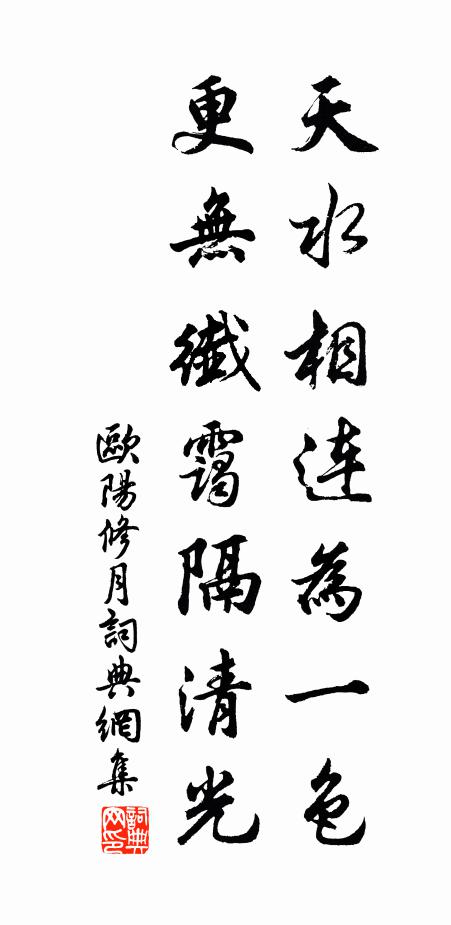 天水相連為一色
更無纖靄隔清光
歐陽修月詞典網集
詞典
网印